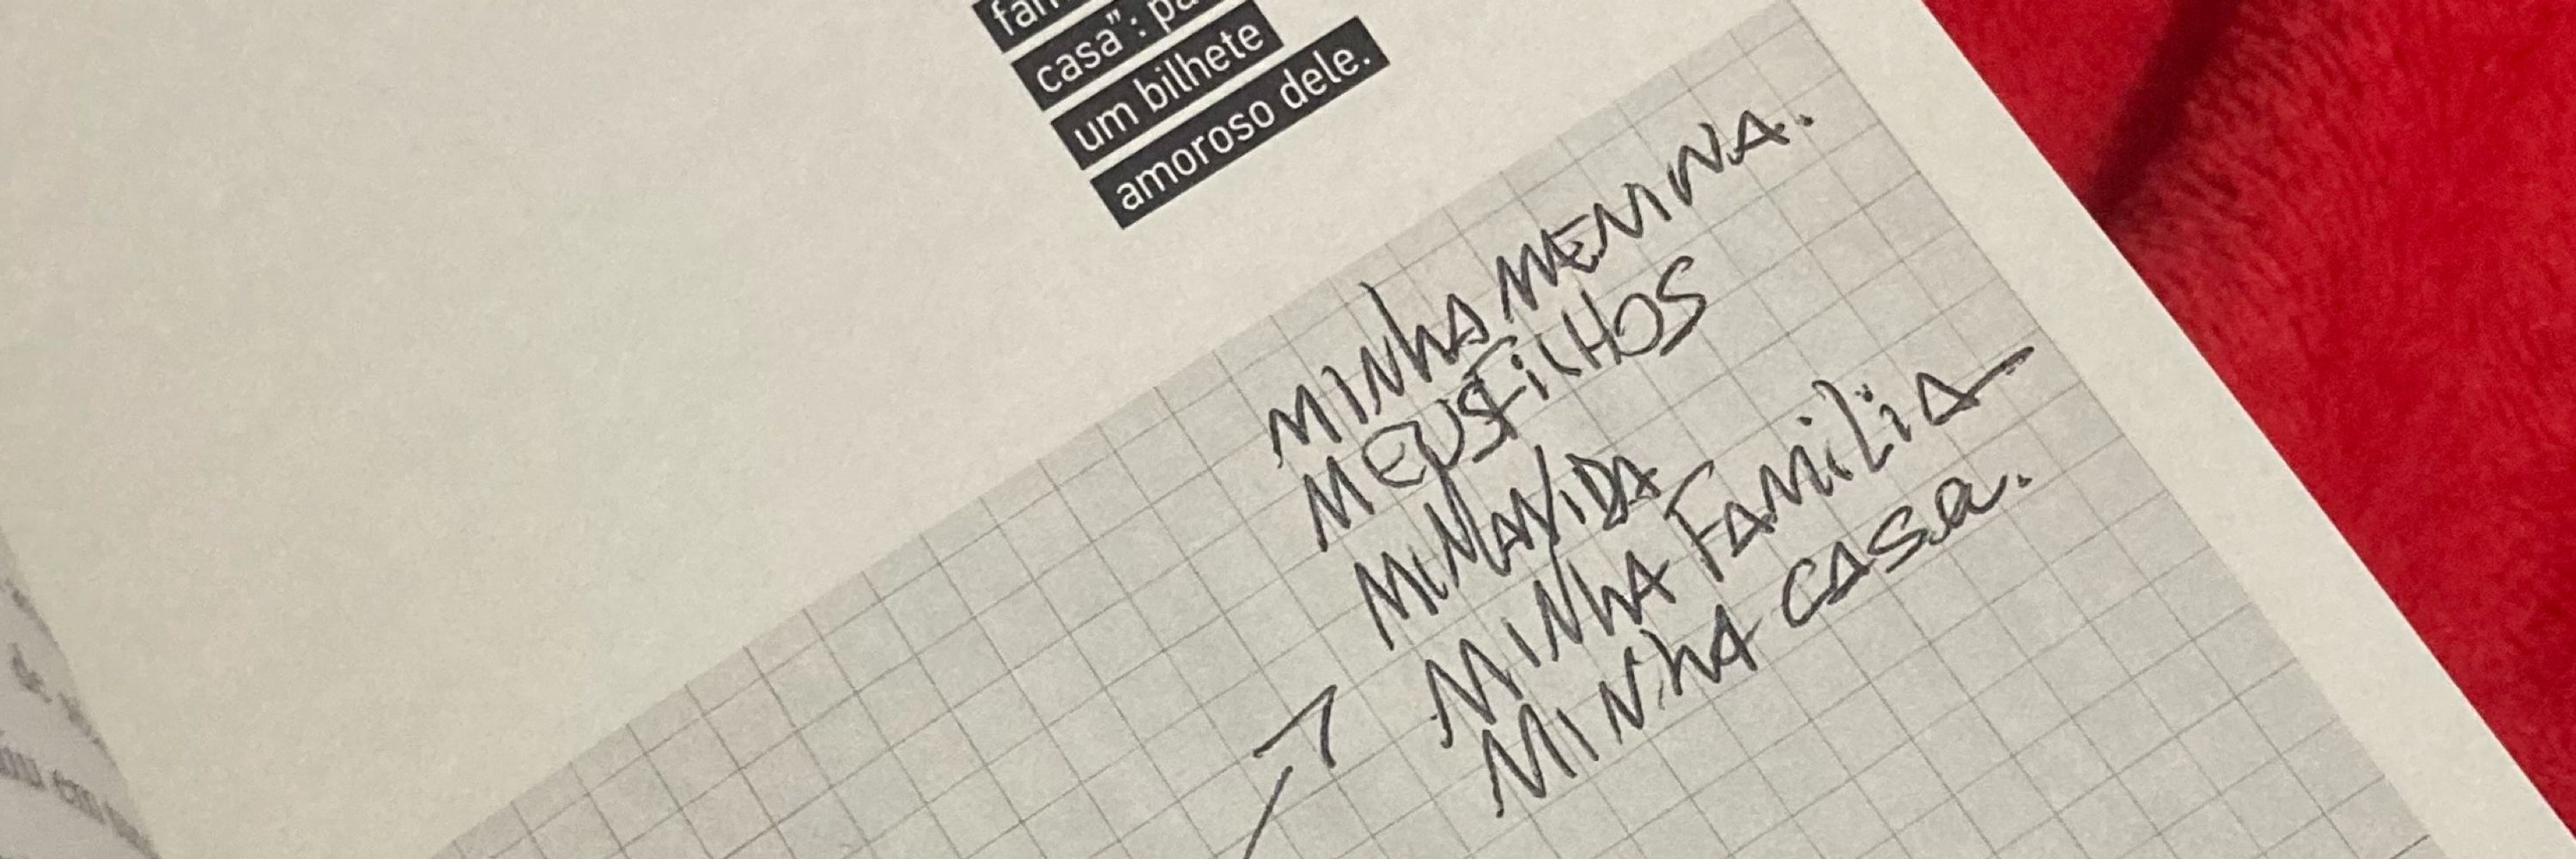 casa":
um bilhete
amoroso dele.
MINhA MENINA.
MEUS FiLHOS
MINhA VIDA
MINhA FAMiLiA
MINhA CASa.